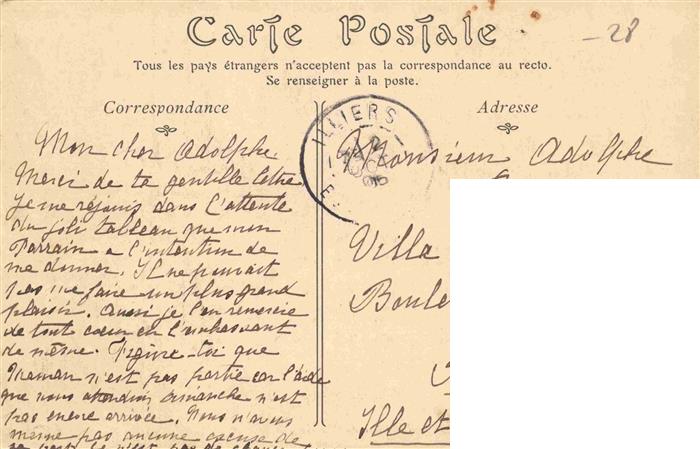 Carte Postale
- 28
Tous les pays étrangers n'acceptent pas la correspondance au recto.
Se renseigner à la poste.
Correspondance
Adresse
ILLIERS
Mon cher Adolphe
Merci de ta gentille lettre
Je me réjouis dans l'attente
du joli tableau que mon
Parrain a l'intention de
me donner. Il ne pouvait
pas me faire un plus grand
plaisir. Aussi je l'en remercie
de tout cœur en l'embrassant
de même. Figure-toi que
Maman n'est pas partie car l'aide
que nous attendions dimanche n'est
pas encore arrivée. Nous n'avons
même pas aucune excuse de
Monsieur Adolphe
Villa
Boule
Ille et